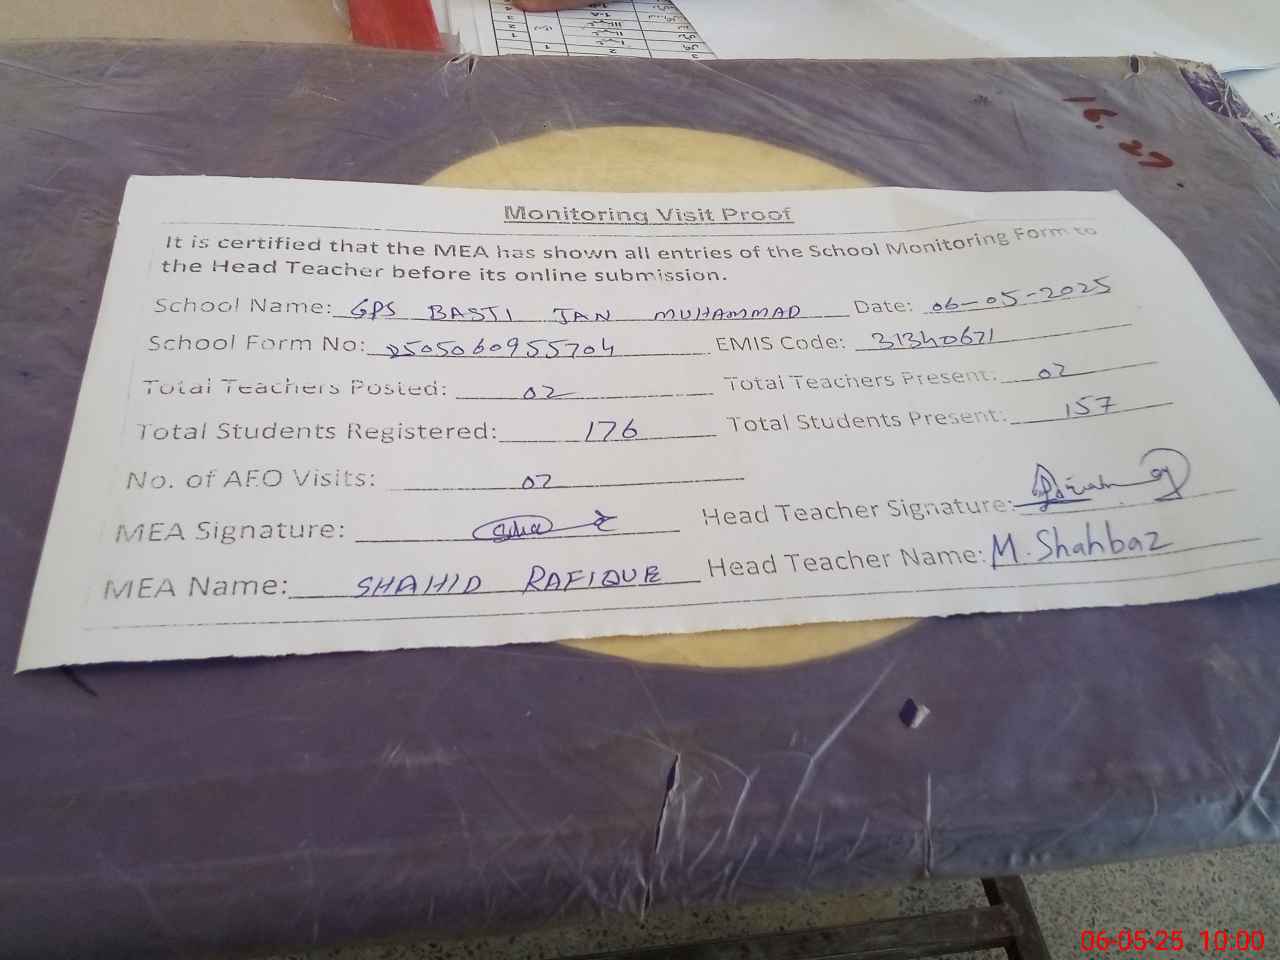 16.27
Monitoring Visit Proof
It is certified that the MEA has shown all entries of the School Monitoring Form to
the Head Teacher before its online submission.
School Name: GPS BASTI JAN MUHAMMAD Date: 06-05-2025
School Form No: 2505060955704 EMIS Code: 31340671
Total Teachers Posted: 02 Total Teachers Present: 02
Total Students Registered: 176 Total Students Present: 157
No. of AEO Visits: 02
MEA Signature: Head Teacher Signature:
MEA Name: SHAHID RAFIQUE Head Teacher Name: M. Shahbaz
06-05-25 10:00